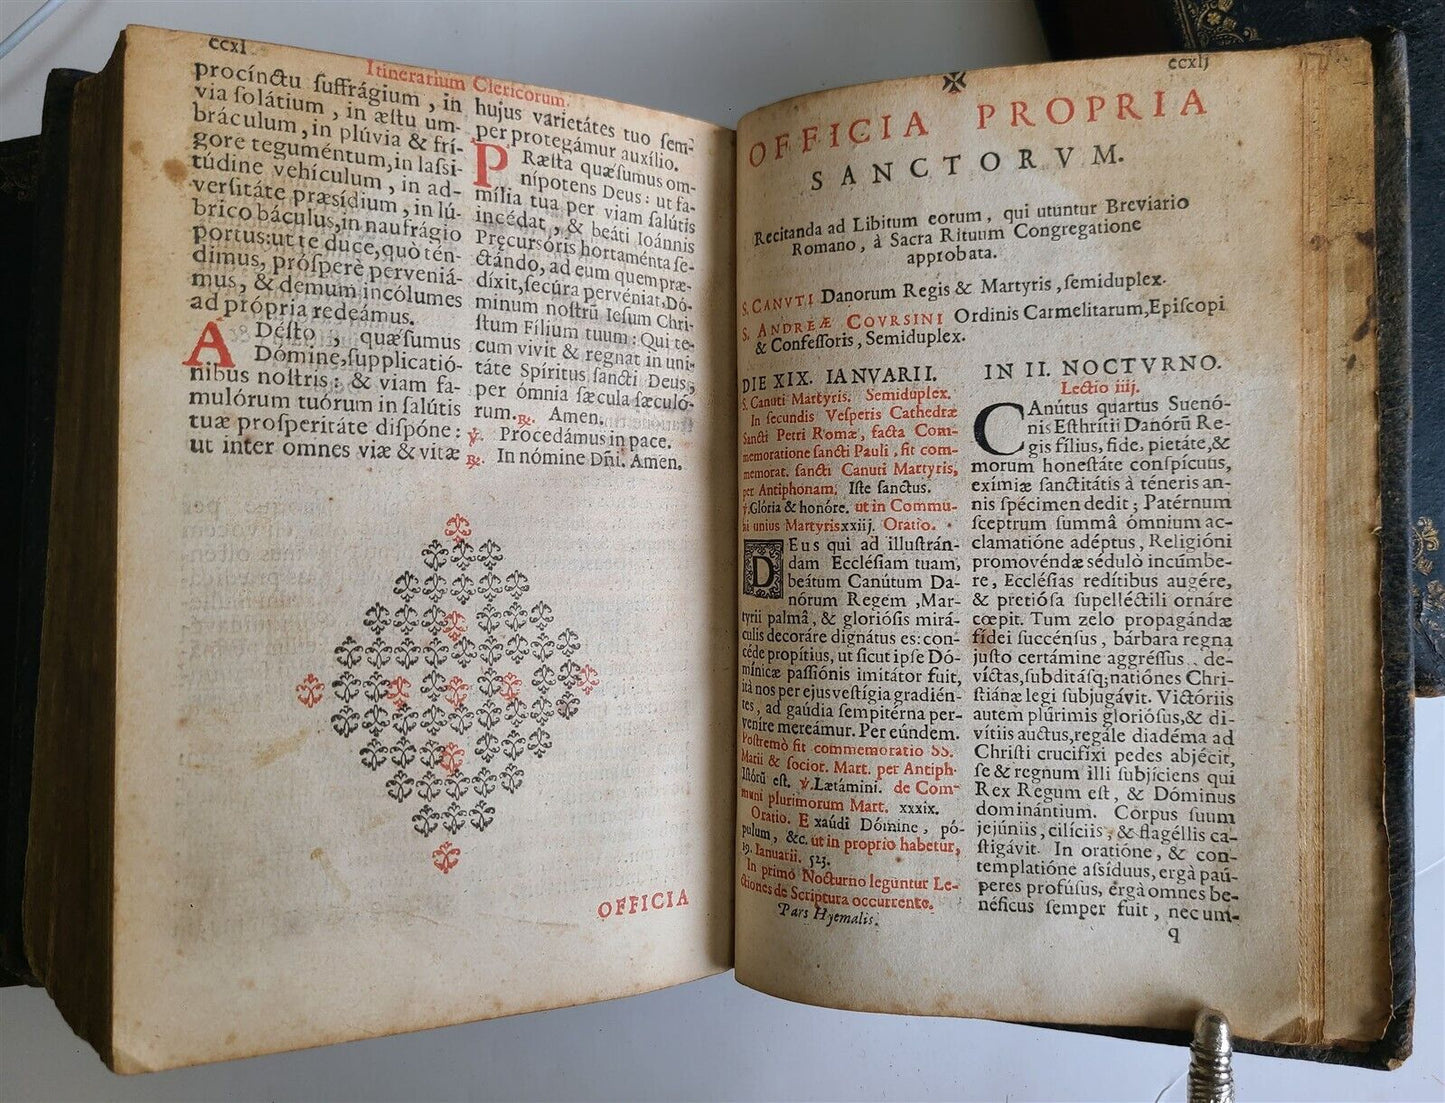 ccxl
Itinerarium Clericorum.
procínctu ſuffrágium , in
via ſolátium , in æſtu um-
bráculum, in plúvia & frí-
gore teguméntum, in laſſi-
túdine vehículum , in ad-
verſitáte præsídium , in lú-
brico báculus, in naufrágio
portus: ut te duce, quò tén-
dimus, próſperè perveniá-
mus, & demum incólumes
ad própria redeámus.
ADéſto , quæſumus
Dómine, ſupplicatió-
nibus noſtris: & viam fa-
mulórum tuórum in ſalútis
tuæ proſperitáte diſpóne:
ut inter omnes viæ & vitæ
hujus varietátes tuo ſem-
per protegámur auxílio.
PRæſta quæſumus om-
nípotens Deus: ut fa-
mília tua per viam ſalútis
incédat , & beáti Ioánnis
Pręcursóris hortaménta ſe-
ctándo, ad eum quem præ-
díxit, ſecúra pervéniat, Dó-
minum noſtrũ Ieſum Chri-
ſtum Fílium tuum: Qui te-
cum vivit & regnat in uni-
táte Spíritus ſancti Deus,
per ómnia ſæcula ſæculó-
rum. ℟. Amen.
℣. Procedámus in pace.
℟. In nómine Dñi. Amen.
OFFICIA
ccxlj
✠
OFFICIA PROPRIA
SANCTORVM.
Recitanda ad Libitum eorum, qui utuntur Breviario
Romano, à Sacra Rituum Congregatione
approbata.
S. CANVTI Danorum Regis & Martyris, ſemiduplex.
S. ANDREÆ COVRSINI Ordinis Carmelitarum, Epiſcopi
& Confeſſoris, Semiduplex.
DIE XIX. IANVARII.
S. Canuti Martyris. Semiduplex.
In ſecundis Veſperis Cathedræ
Sancti Petri Romæ, facta Com-
memoratione ſancti Pauli, fit com-
memorat. ſancti Canuti Martyris,
per Antiphonam, Iſte ſanctus.
℣. Glória & honóre. ut in Commu-
ni unius Martyris xxiij. Oratio.
DEus qui ad illuſtrán-
dam Eccléſiam tuam,
beátum Canútum Da-
nórum Regem , Mar-
tyrii palmâ, & glorióſis mirá-
culis decoráre dignátus es: con-
céde propítius, ut ſicut ipſe Dó-
mínicæ paſſiónis imitátor fuit,
ità nos per ejus veſtígia gradién-
tes, ad gaúdia ſempitérna per-
veníre mereámur. Per eúndem.
Poſtremò fit commemoratio SS.
Marii & ſocior. Mart. per Antiph.
Iſtórũ eſt. ℣. Lætámini. de Com-
muni plurimorum Mart. xxxix.
Oratio. Exaúdi Dómine, pó-
pulum, &c. ut in proprio habetur,
19. Ianuarii. 523.
In primo Nocturno leguntur Le-
ctiones de Scriptura occurrente.
Pars Hyemalis.
IN II. NOCTVRNO.
Lectio iiij.
CAnútus quartus Suenó-
nis Eſthrítii Danórũ Re-
gis fílius, fide, pietáte, &
morum honeſtáte conſpícuus,
exímiæ ſanctitátis à téneris an-
nis ſpécimen dedit; Patérnum
ſceptrum ſummâ ómnium ac-
clamatióne adéptus, Religióni
promovéndæ ſédulò incúmbe-
re, Eccléſias redítibus augére,
& pretióſa ſupelléctili ornáre
cœpit. Tum zelo propagándæ
fídei ſuccénſus, bárbara regna
juſto certámine aggréſſus, de-
víctas, ſubditáſq; natiónes Chri-
ſtiánæ legi ſubjugávit. Victóriis
autem plúrimis glorióſus, & di-
vítiis auctus, regále diadéma ad
Chriſti crucifíxi pedes abjécit,
ſe & regnum illi ſubjíciens qui
Rex Regum eſt, & Dóminus
dominántium. Corpus ſuum
jejúniis, cilíciis, & flagéllis ca-
ſtigávit. In oratióne, & con-
templatióne aſſíduus, ergà paú-
peres profúſus, ergà omnes be-
néficus ſemper fuit, nec um-
q